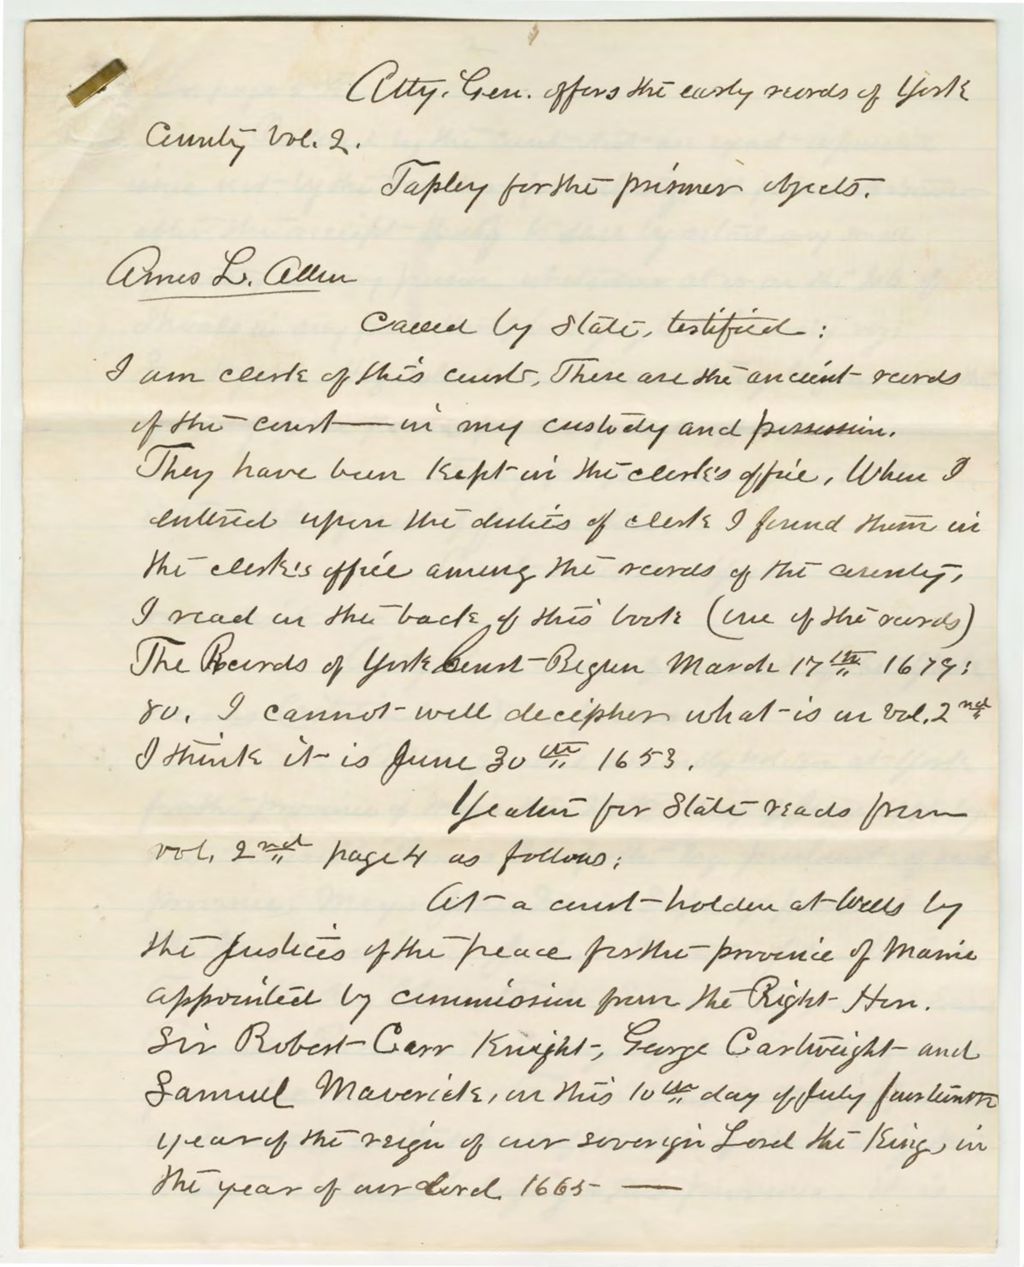 Atty. Gen. offers the early records of York
County Vol. 2.
Tapley for the prisoner objects.
Amos L. Allen
Called by State, testified:
I am clerk of this court. These are the ancient records
of the court — in my custody and possession.
They have been kept in the clerk's office. When I
entered upon the duties of clerk I found them in
the clerk's office among the records of the county.
I read on the back of this book (one of the records)
The Records of York Court Begun March 17th 1679:
80. I cannot well decipher what is on vol. 2nd
I think it is June 30th 1653.
Yeaton for State reads from
vol. 2nd page 4 as follows:
At a court holden at Wells by
the Justices of the peace for the province of Maine
appointed by commission from the Right Hon.
Sir Robert Carr Knight, George Cartwright and
Samuel Maverick, on this 10th day of July fourteenth
year of the reign of our sovereign Lord the King, in
the year of our Lord 1665 —